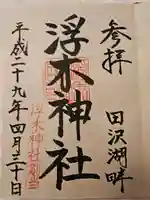 参拝
田沢湖畔
浮木神社
浮木神社
平成二十九年四月三十日